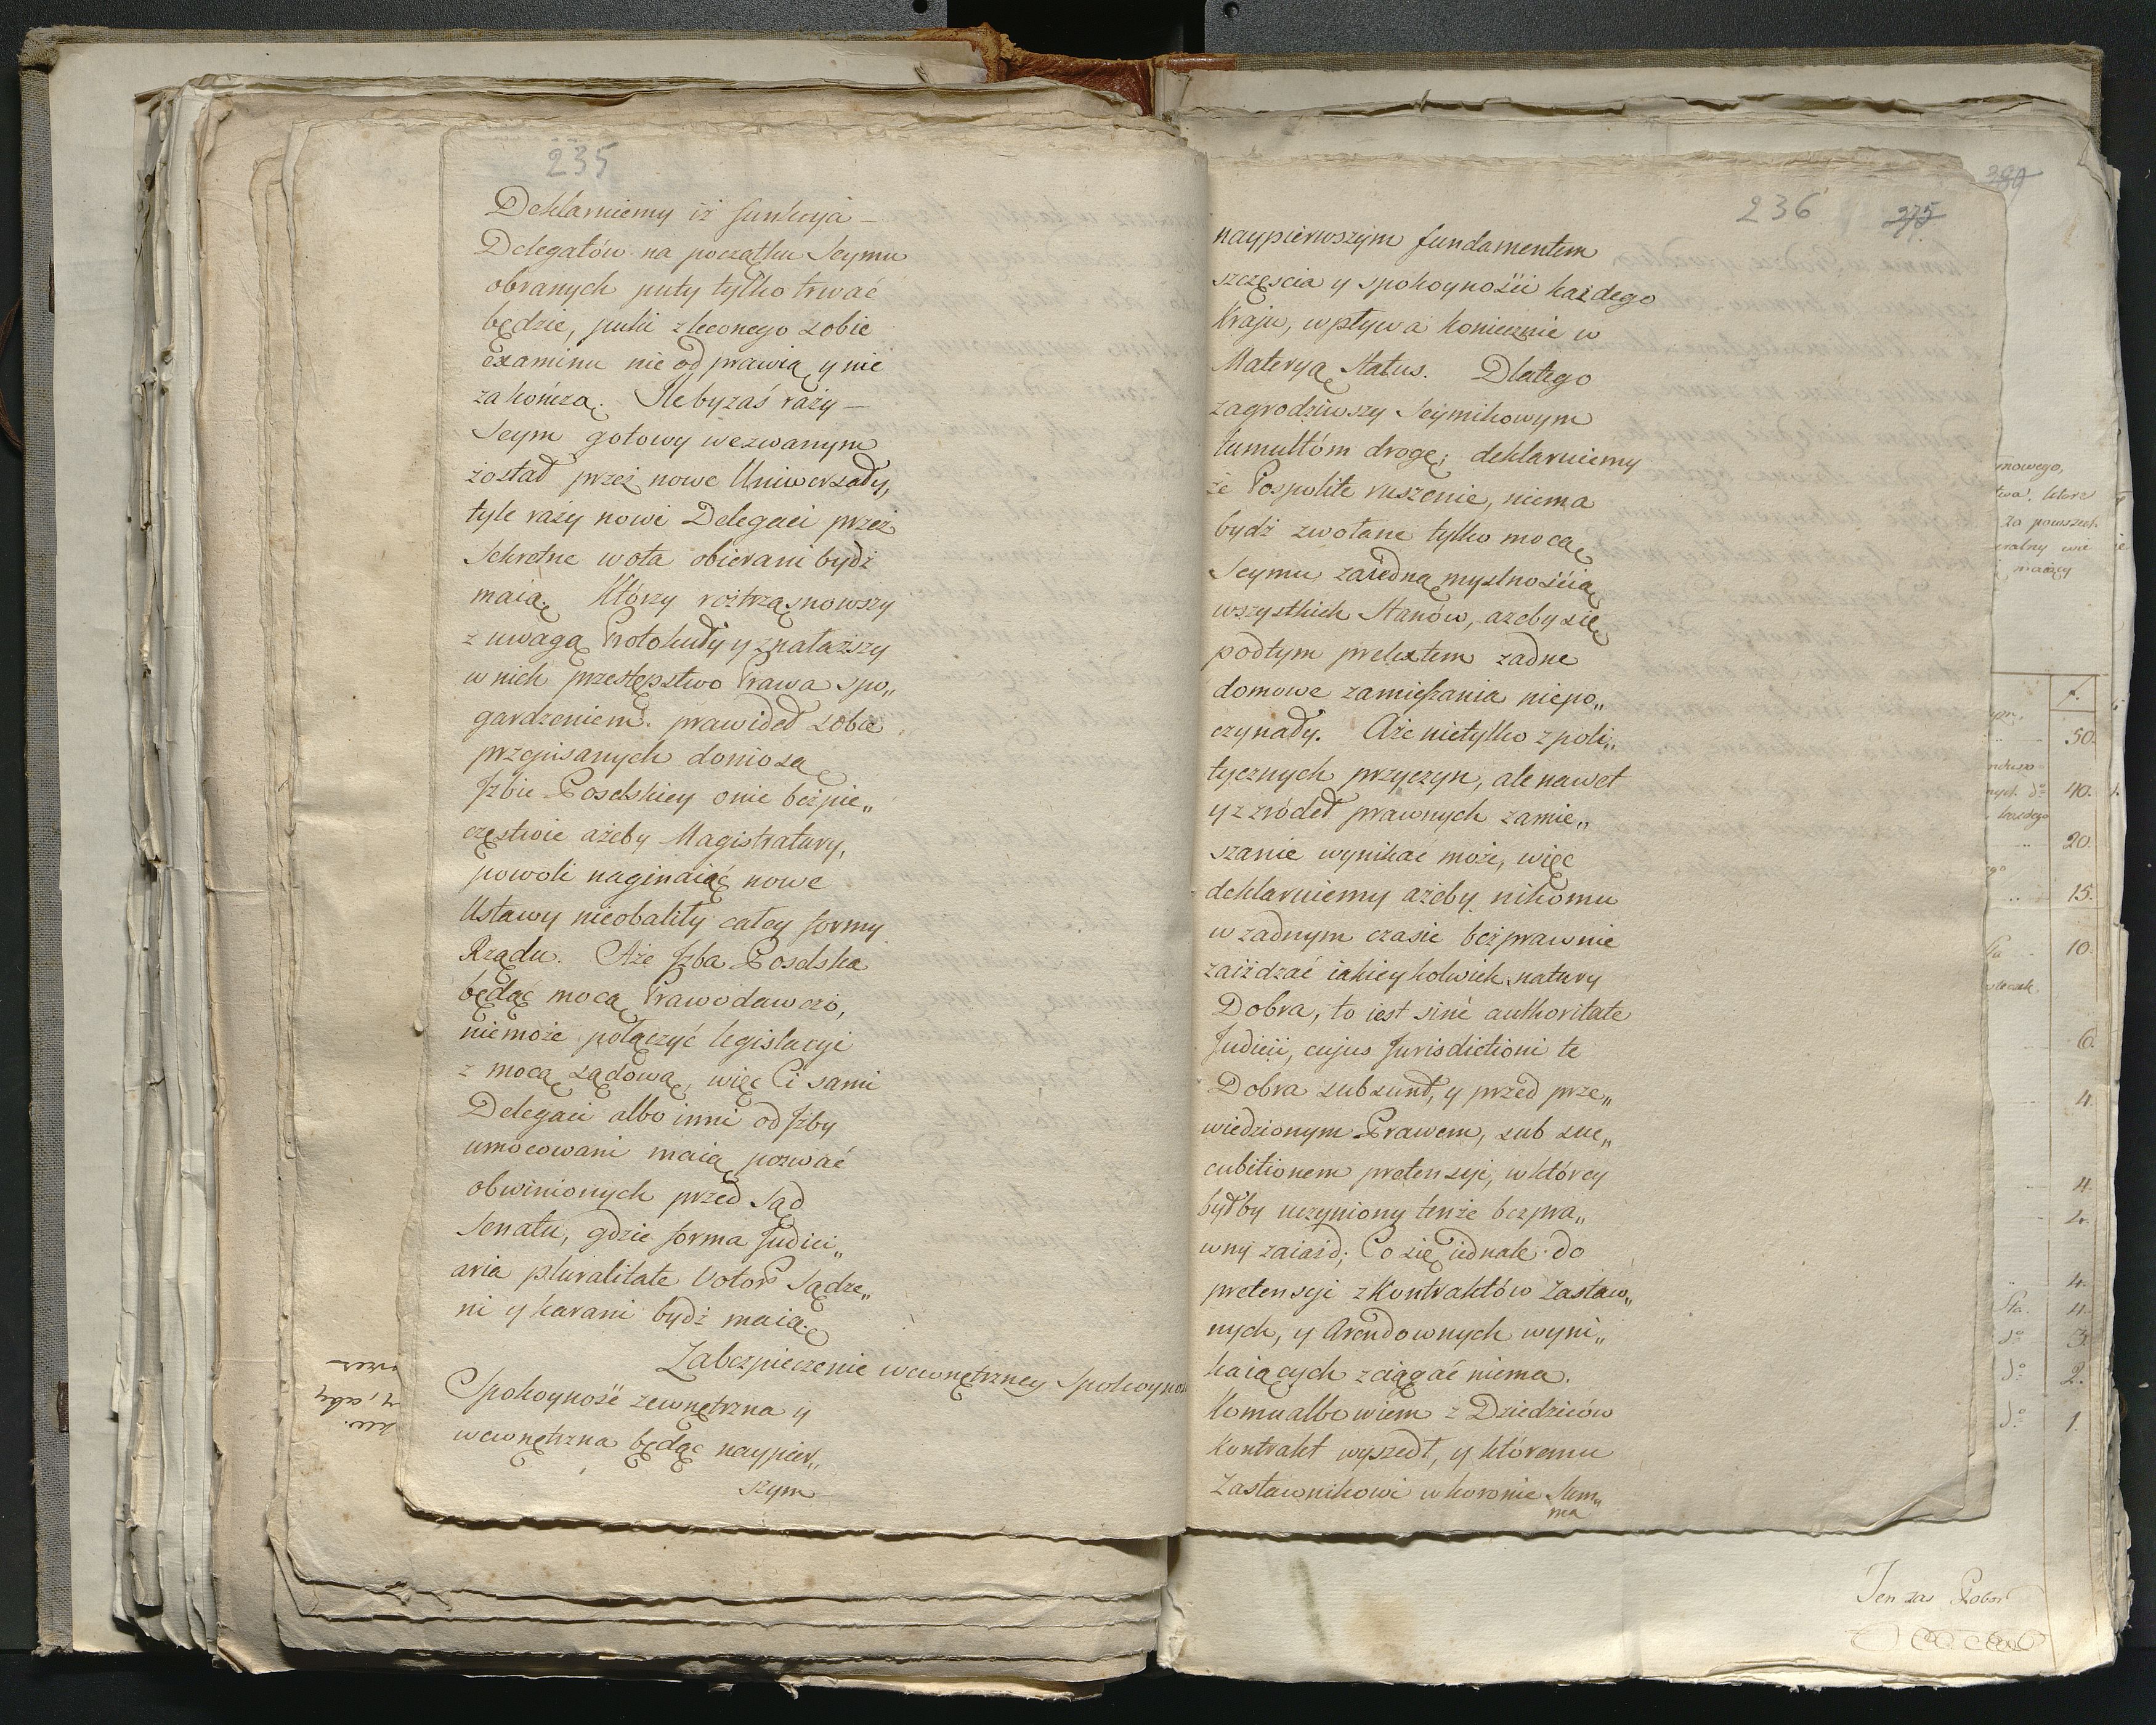 235
Deklaruiemy iż funkcyia
Delegatów na początku Seymu
obranych puty tylko trwać
będzie, puki zleconego sobie
examinu nie odprawią y nie
zakończą. Ilebyzaś razy
Seym gotowy wezwanym
został przez nowe Uniwersały,
tyle razy nowi Delegaci przez
Sekretne wota obierani bydź
maią. Którzy roztrząsnowszy
z uwagą Protokuły y znalazszy
w nich przestępstwo Prawa spo„
gardzeniem prawideł sobie
przepisanych doniosą
Jzbie Poselskiey o nie beśpie„
częstwie ażeby Magistratury,
powoli naginaiąc nowe
Ustawy nieobaliły całey formy
Rządu. Aże Jzba Poselska
będąc mocą Prawodawczo,
niemoże połączyć legislacyi
z mocą sądową, więc Ci sami
Delegaci albo inni od Jzby
umocowani maią pozwać
obwinionych przed Sąd
Senatu, gdzie forma Judici„
aria pluralitate Votor Sądze„
ni y karani bydź maią.
Zabezpieczenie wewnętrzney Spokoyno
Spokoyność zewnętrzna y
wewnętrzna będąc naypier„
szym
236
275
naypierwszym fundamentem
szczęscia y spokoynośii każdego
Kraju, wpływa koniecznie w
Materyą Status. Dlatego
zagrodziwszy Seymikowym
tumultóm drogę; deklaruiemy
że Pospolite ruszenie, niema
bydź zwołane tylko mocą
Seymu zaiedną myslnośiią
wszystkich Stanów, azeby się
podtym pretextem zadne
domowe zamieszania niepo„
czynały. Aże nietylko z poli„
tycznych przyczyn, ale nawet
y z zródeł prawnych zamie„
szanie wynikać może, więc
deklaruiemy ażeby nikomu
w zadnym czasie bezprawnie
zaiżdzać iakieykolwiek natury
Dobra, to iest siné authoritate
Judicii, cujus Jurisdictioni te
Dobra subsunt, y przed prze„
wiedzionym Prawem, sub suc„
cubitionem pretensyi, w którey
byłby uczyniony tenże bezpra„
wny zaiazd; Co się iednak do
pretensyi z Kontraktów Zastaw„
nych, y Arendownych wyni„
kaiących zciągać niema.
Komu albowiem z Dziedziców
Kontrakt wyszedł, y któremu
Zastawnikowi w koronie Sum„
ma
mowego,
twa, ktore
za powszech
eralny
maiący
f.
50.
40.
kazdego
20.
15.
10.
6.
4.
4.
2.
4.
4.
3.
2.
1.
Ten zas Pobor